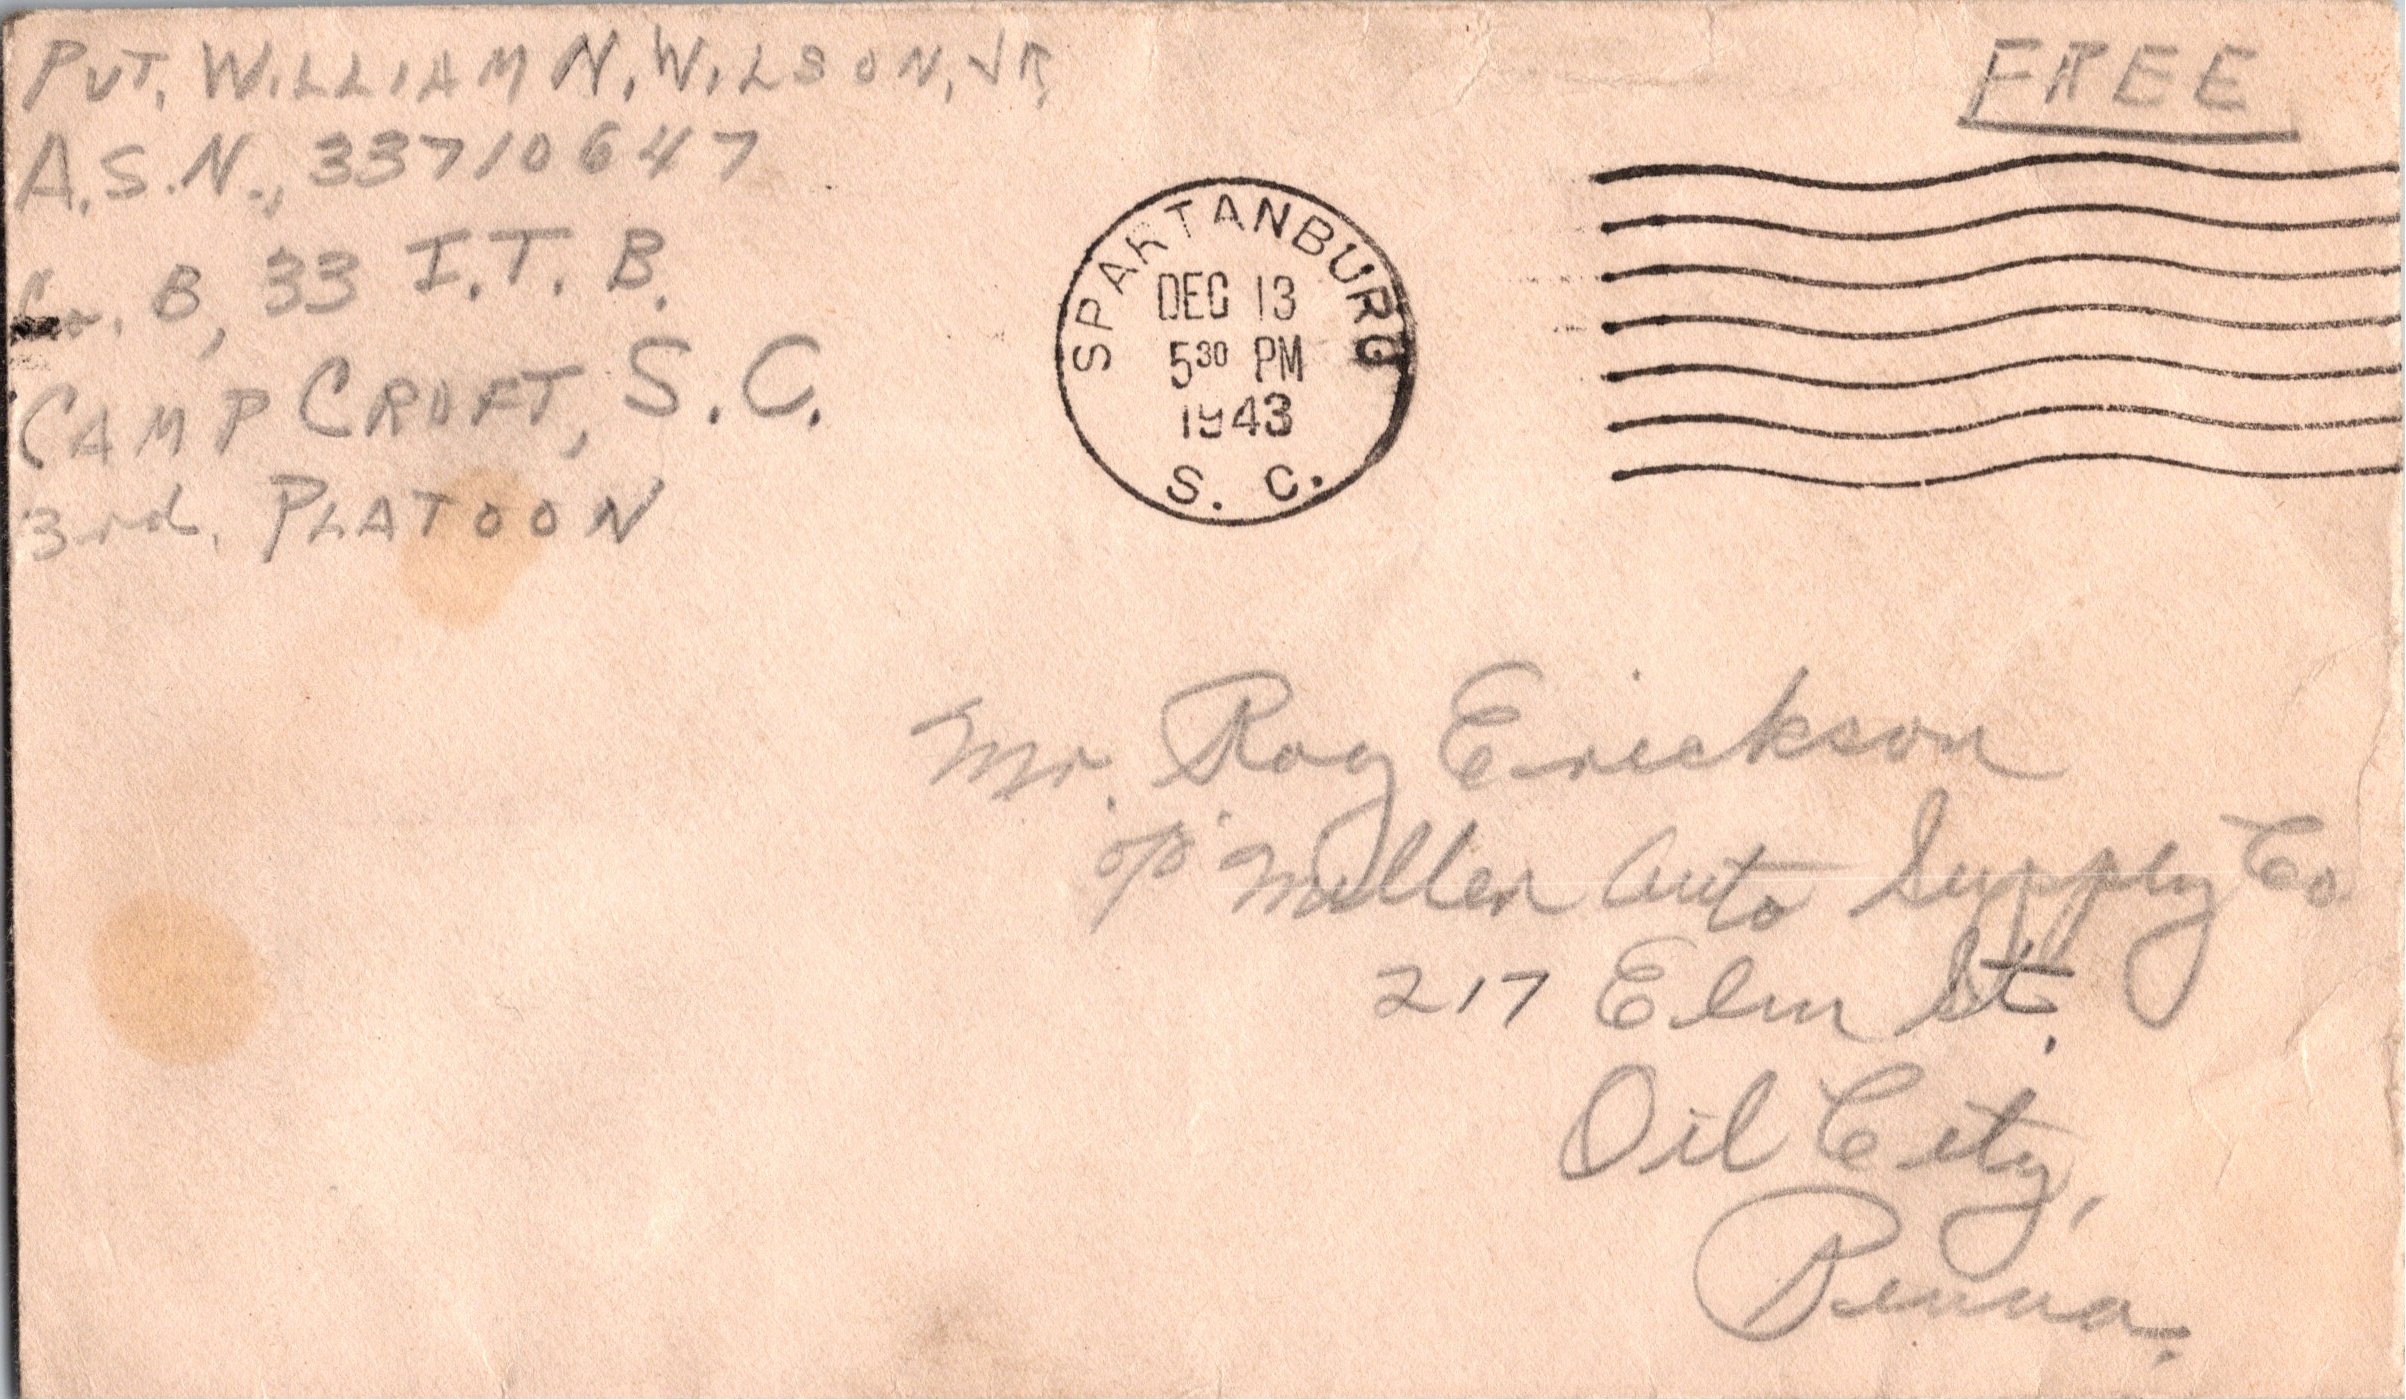 PVT. WILLIAM N. WILSON, JR.
A.S.N., 33710647
Co. B, 33 I.T.B.
CAMP CROFT, S.C.
3rd. PLATOON
FREE
SPARTANBURG
DEC 13
5 30 PM
1943
S. C.
Mr. Roy Erickson
c/o Miller Auto Supply Co
217 Elm St.
Oil City,
Penna.